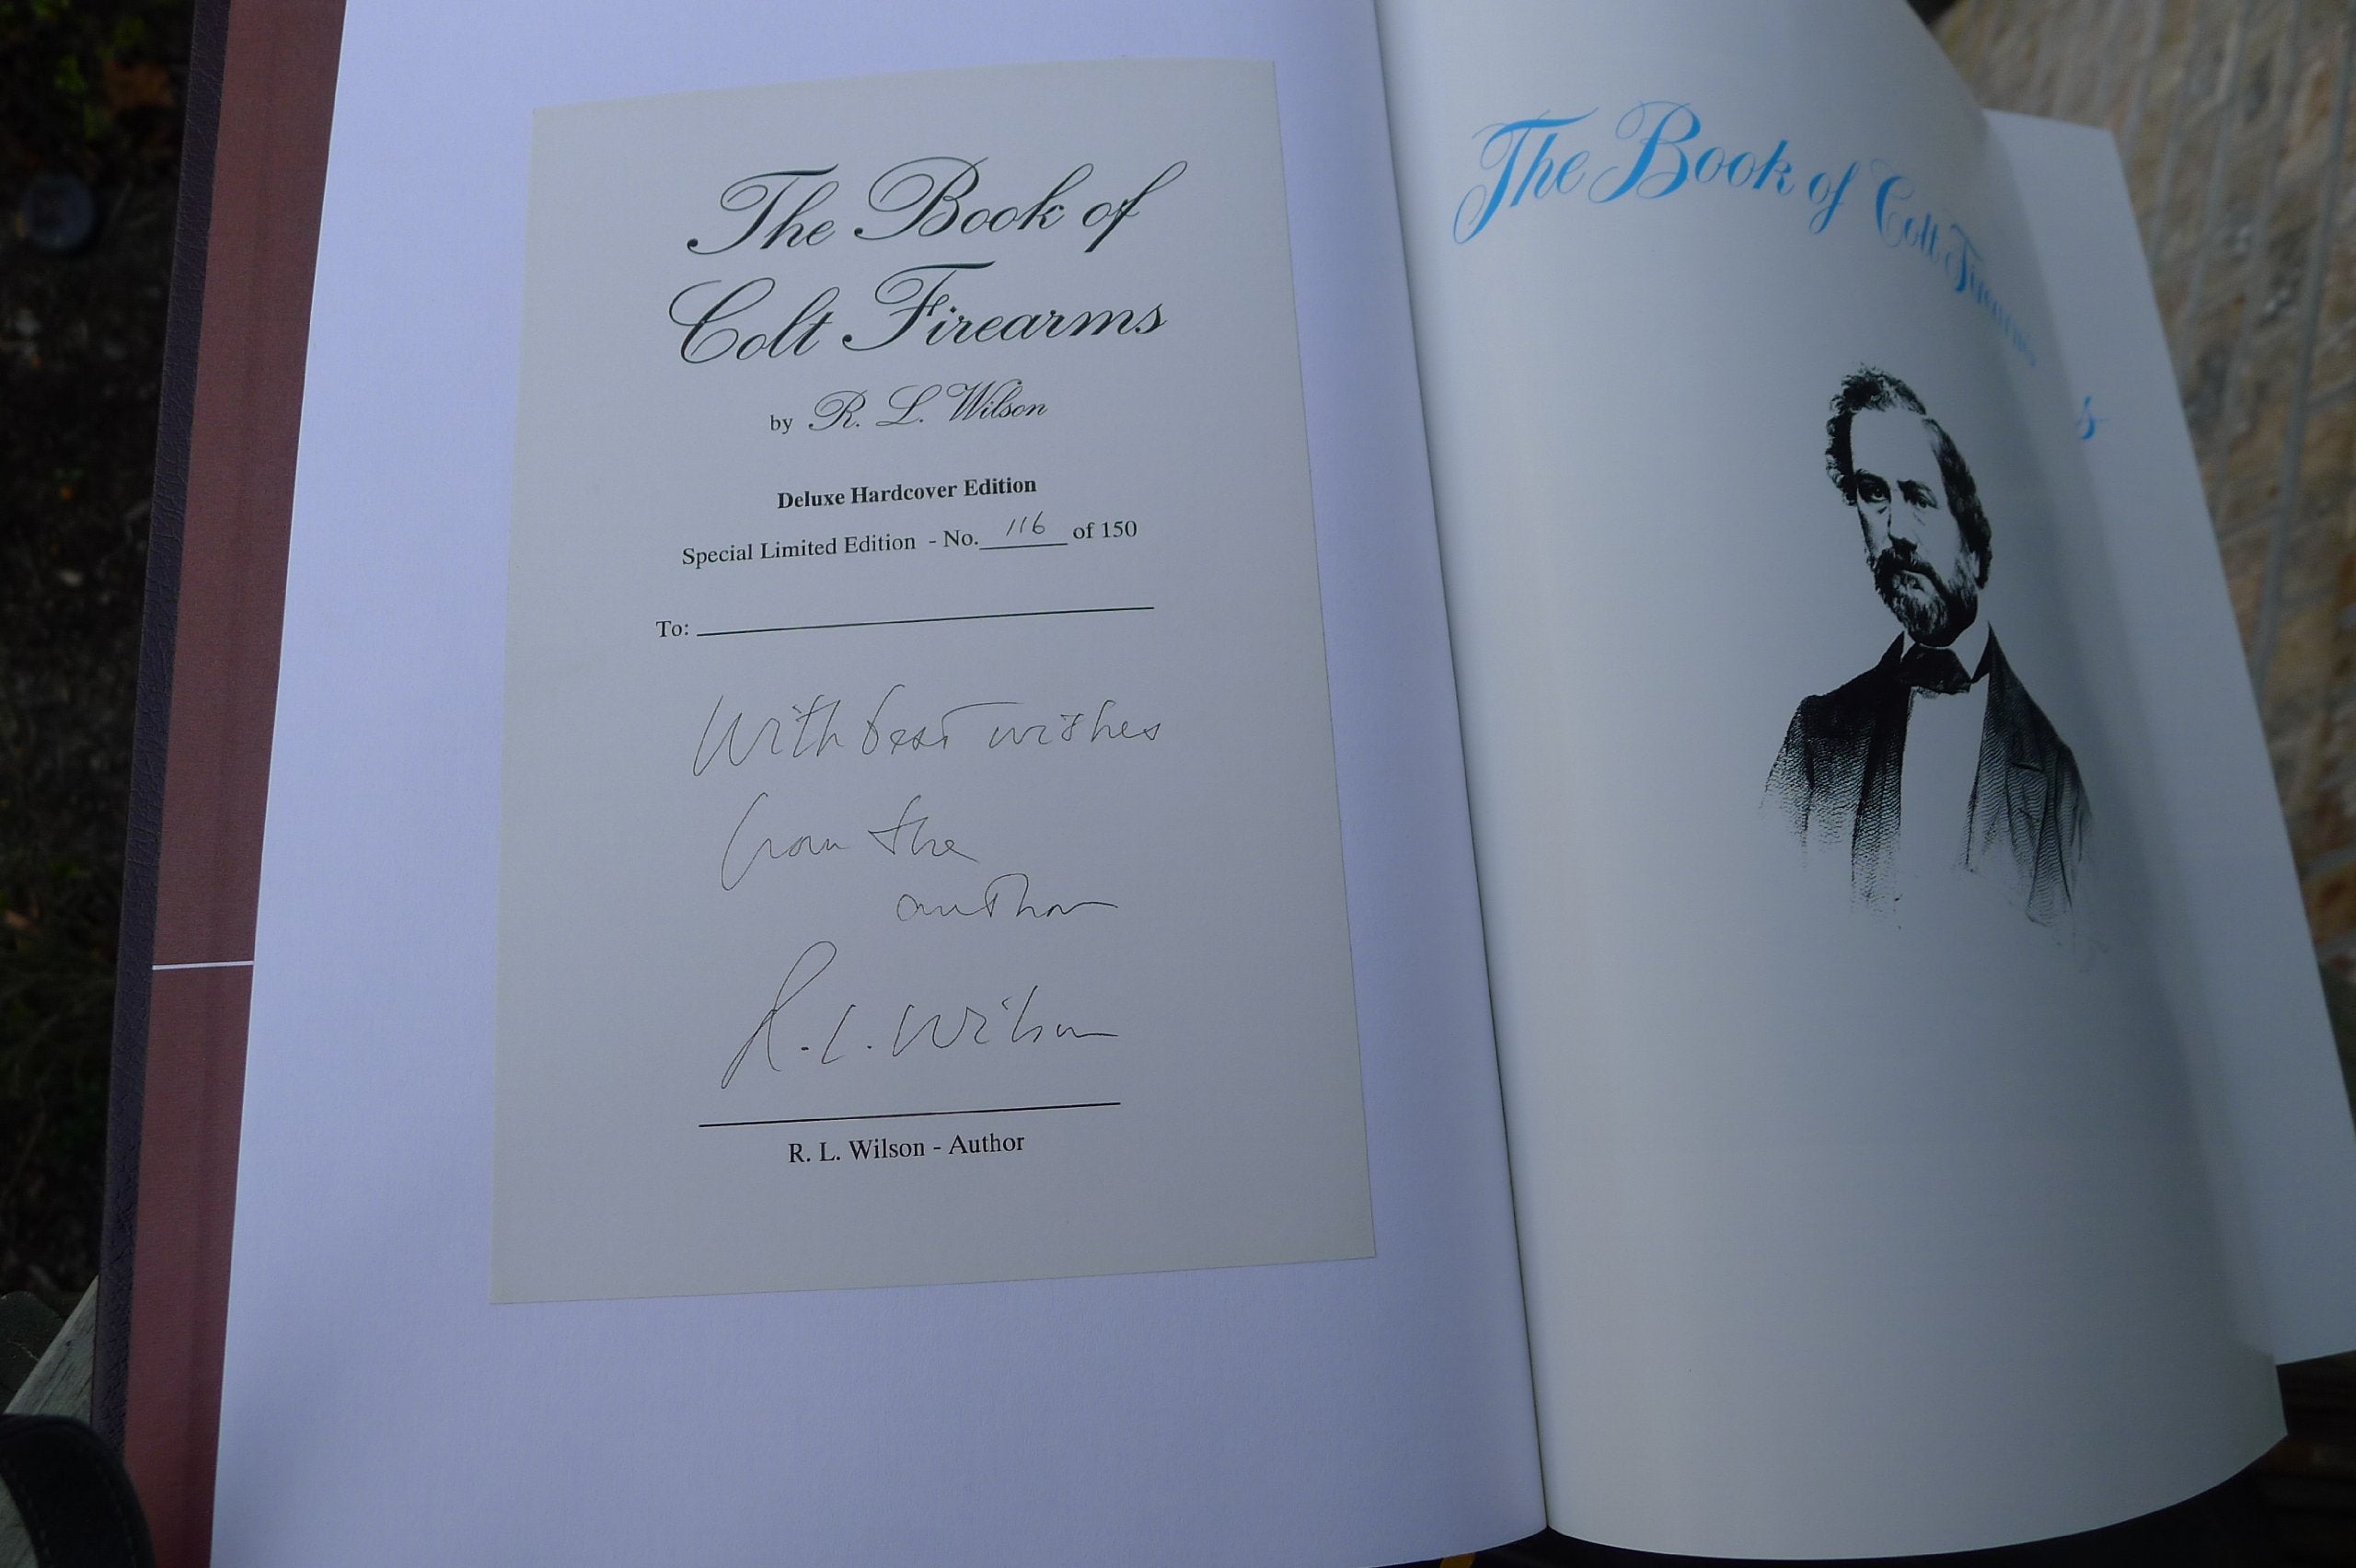 The Book of
Colt Firearms
by R. L. Wilson
Deluxe Hardcover Edition
Special Limited Edition - No. 116 of 150
To:
With best wishes
from the
author
R. L. Wilson
R. L. Wilson - Author
The Book of Colt Firearms
s